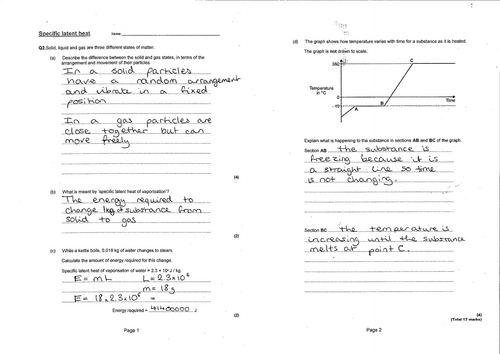 Specific latent heat
Name
Q2. Solid, liquid and gas are three different states of matter.
(a) Describe the difference between the solid and gas states, in terms of the
arrangement and movement of their particles.
In a solid particles
have a random arrangement
and vibrate in a fixed
position
In a gas particles are
close together but can
move freely
(4)
(b) What is meant by 'specific latent heat of vaporisation'?
The energy required to
change 1kg of substance from
solid to gas
(2)
(c) While a kettle boils, 0.018 kg of water changes to steam.
Calculate the amount of energy required for this change.
Specific latent heat of vaporisation of water = 2.3 × 10⁶ J / kg.
E = mL L = 2.3×10⁶
m = 18g
E = 18 × 2.3×10⁶ =
Energy required = 41400000 J
(2)
Page 1
(d) The graph shows how temperature varies with time for a substance as it is heated.
The graph is not drawn to scale.
350
C
Temperature
in °C
0
Time
-10
A
B
Explain what is happening to the substance in sections AB and BC of the graph.
Section AB the substance is
freezing because it is
a straight line so time
is not changing.
Section BC the temperature is
increasing until the substance
melts at point C.
(4)
(Total 12 marks)
Page 2